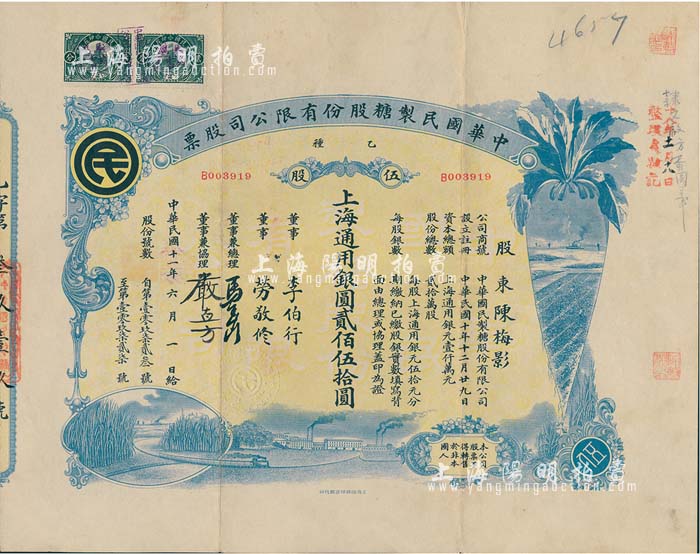 4657
上海陽明拍賣
www.yangmingauction.com
中華國民製糖股份有限公司股票
乙種
伍股
B003919
B003919
股東陳梅影
公司商號 中華國民製糖股份有限公司
設立註冊 中華民國十年十二月廿九日
資本總額 上海通用銀元壹仟萬元
股份總數 貳拾萬股
每股銀數 每股上海通用銀元伍拾元分
期繳納已繳股銀實數填寫背
面由總理或協理蓋印為證
上海通用銀圓貳佰伍拾圓
董事 李伯行
董事 勞敬修
董事兼總理
董事兼協理
中華民國十一年六月一日給
股份號數 自第壹零玖柒貳叁號
至第壹零玖柒貳柒號
民
伍
本公司
股票不
得轉售
於非本
國人
上海陽明拍賣
www.yangmingauction.com
上海陽明拍賣
www.yangmingauction.com
上海陽明拍賣
www.yangmingauction.com